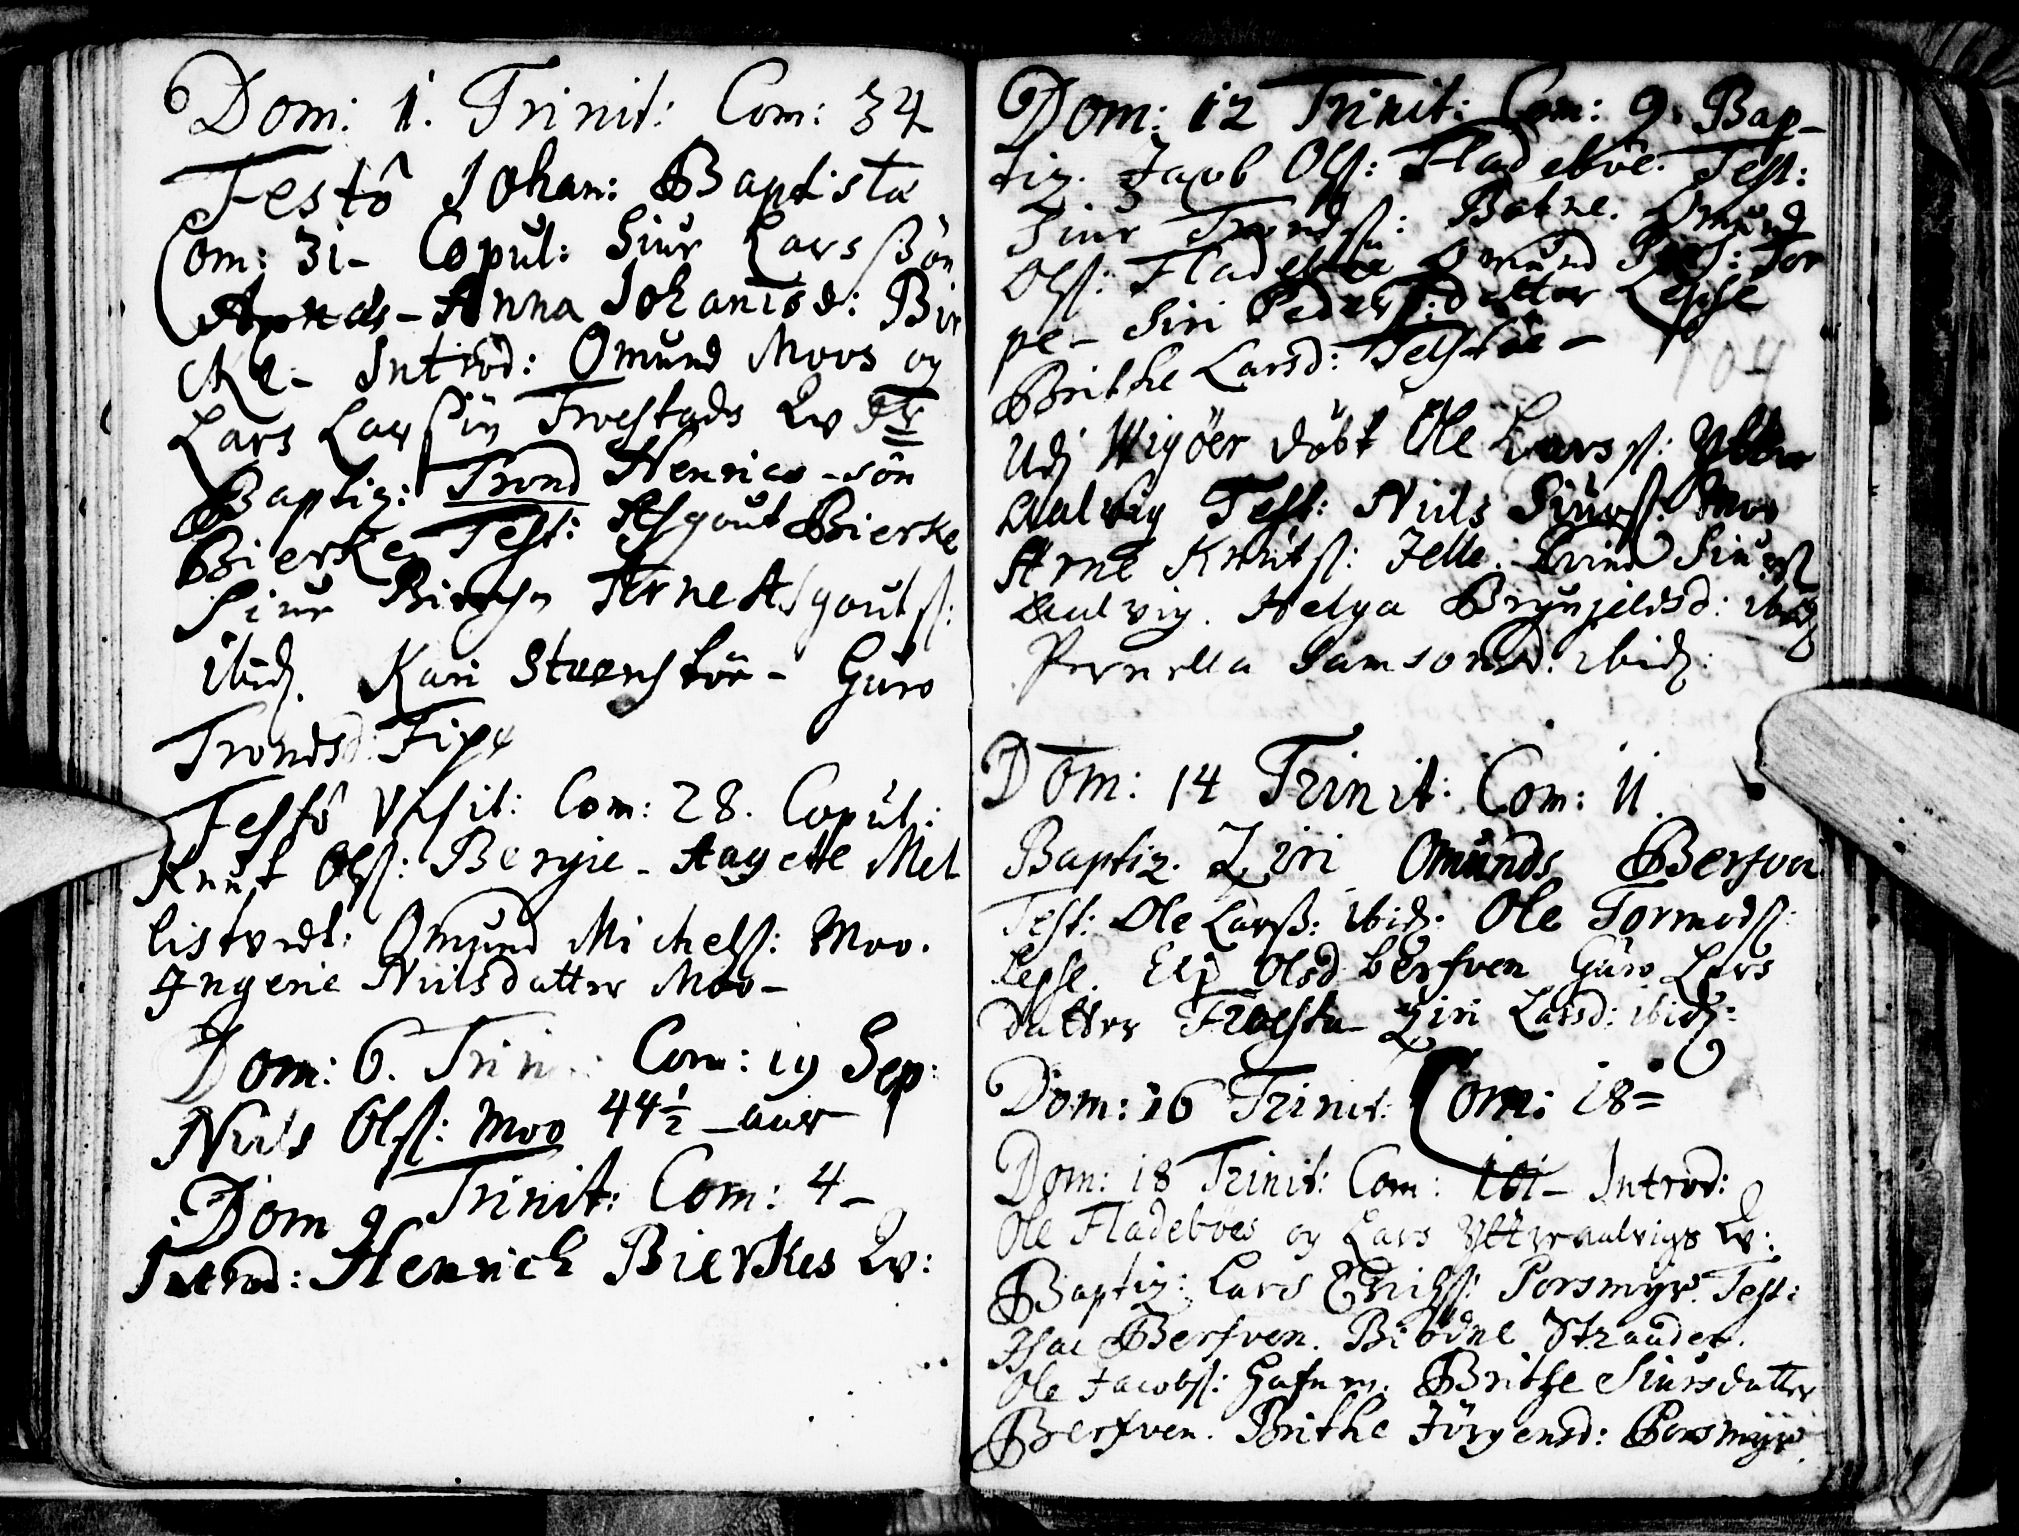 Dom: 1. Trinit: Com: 34
Festô Johan: Baptistæ
Com: 31- Copul: Siur Larssøn
- Anna Johanisd: Bir
cke- Introd: Omund Moos og
Lars Larssøn Troestads Qv
Baptiz: Trond Henrics-søn
Bierke Test: Asgout Bierke
Siur Arne Asgoutss:
ibid. Kari Steenstøe- Guro
Trondsd: Fixe
Festô Visit: Com: 28. Copul:
Knut Olss: Bergie- Aagete Mel
listvedt: Omund Michelss: Moo.
Ingerie Nielsdatter Moo-
Dom: 6. Trin Com: 19 Sep:
Niels Olss: Moo 44½ -aar
Dom 9 Trinit: Com: 4-
Introd: Henrich Bierkes Qv:
Dom: 12 Trinit: Com: 9. Bap-
tiz. Jacob Olss: Fladebøe. Test:
Siur Trondss: Omund
Olss: Fladebøe Omund Tor
pe- Siri Pedersdatter Lepse
Brithe Larsd: Telstøe-
Udj Wigøer døbt Ole Larss: Ytter
aalvig Test: Niels Siurss: Moo
Arne Knutss: Jelle. Evind Siurss
aalvig. Helga Brynjelsd: ibid
Pernella Samsonsd: ibid:
Dom: 14 Trinit: Com: 11
Baptiz. Ziri Omunds Berfven
Test: Ole Larss: ibid: Ole Tormodss:
Lepse. Eli Olsd berfven Guro Lars
datter Troesta Ziri Larsd: ibid:
Dom: 16 Trinit: Com: 18=
Dom: 18 Trinit: Com: 101- Introd:
Ole Fladebøes og Lars Ytteraalvigs Qv:
Baptiz: Lars Erichss: Porsmyr. Test:
Isac Berfven. Biødne Straaden.
Ole Jacobss: Hafnen. Brithe Siursdatter
Berfven. Brithe Jørgensd: Porsmyr.